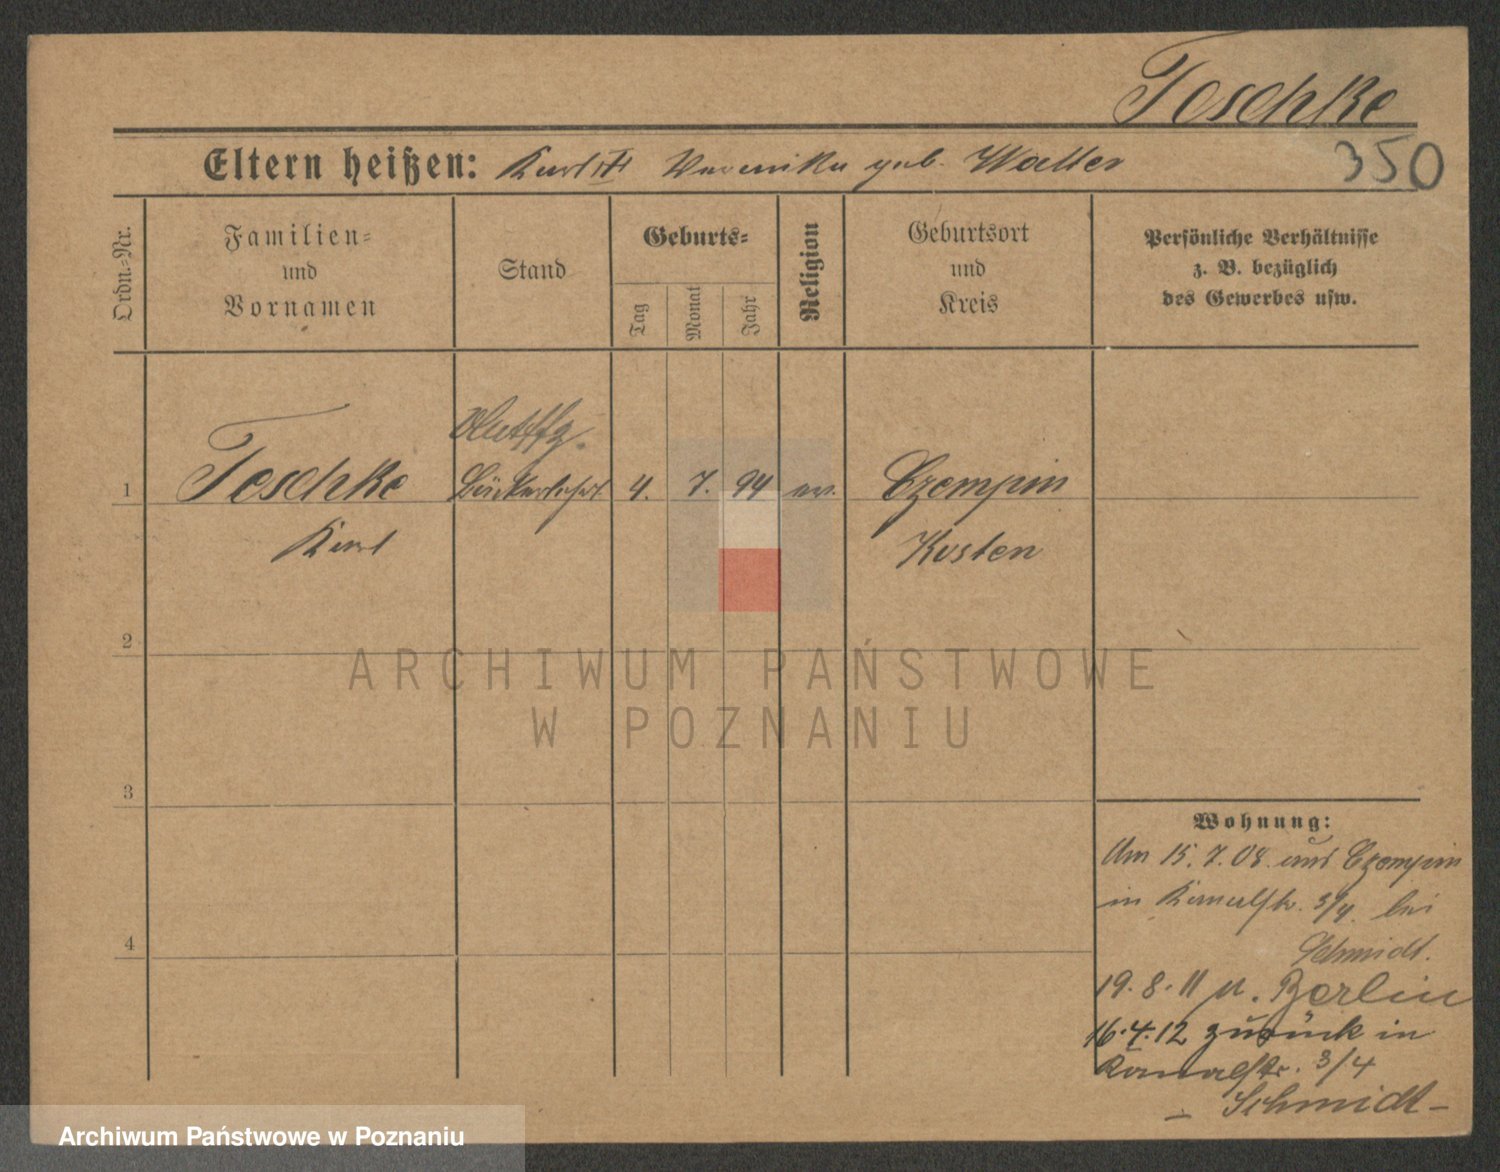 Teschke
Eltern heißen: Karl Veronika geb. Walter
350
Ordn.-Nr.
Familien-
und
Vornamen
Stand
Geburts-
Tag
Monat
Jahr
Religion
Geburtsort
und
Kreis
Persönliche Verhältnisse
z. B. bezüglich
des Gewerbes usw.
1 Teschke Bäckerlehrl. 4. 7. 94 ev. Czempin
Karl Kosten
2
3
4
ARCHIWUM PAŃSTWOWE
W POZNANIU
Wohnung:
Am 15.7.08. aus Czempin
in Kanalstr. 3/4. bei
Schmidt.
19.8.11 n. Berlin
16.4.12 zurück in
Kanalstr. 3/4
- Schmidt -
Archiwum Państwowe w Poznaniu